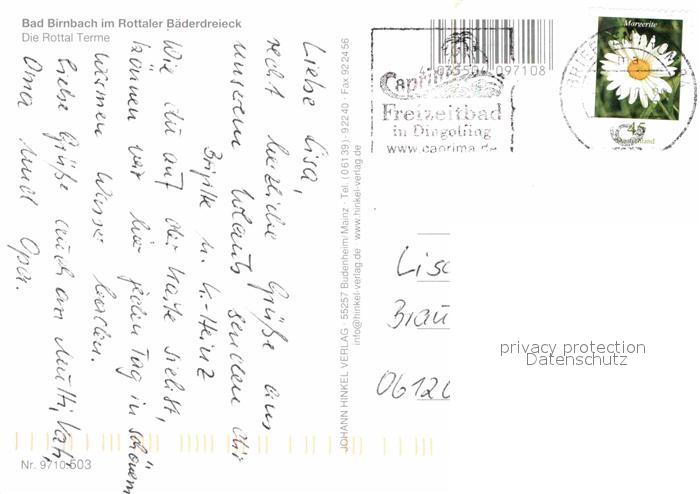 Bad Birnbach im Rottaler Bäderdreieck
Die Rottal Terme
Liebe Lisa,
recht herzliche Grüße aus
unserem Urlaub senden dir
Brigitte u. K.-Heinz
Wie du auf der Karte siehst,
können wir hier jeden Tag in schönem
warmen Wasser baden.
Liebe Grüße auch an Mutti, Vati,
Oma und Opa.
Nr. 9710 503
JOHANN HINKEL VERLAG · 55257 Budenheim/Mainz · Tel. (0 61 39) 9 22 40 · Fax 92 24 56
info@hinkel-verlag.de www.hinkel-verlag.de
4 035504 097108
Freizeitbad
in Dingolfing
www.caprima.de
BRIEFZENTRUM 84
Margerite
45
Deutschland
Lisa
Brau
06120
privacy protection
Datenschutz